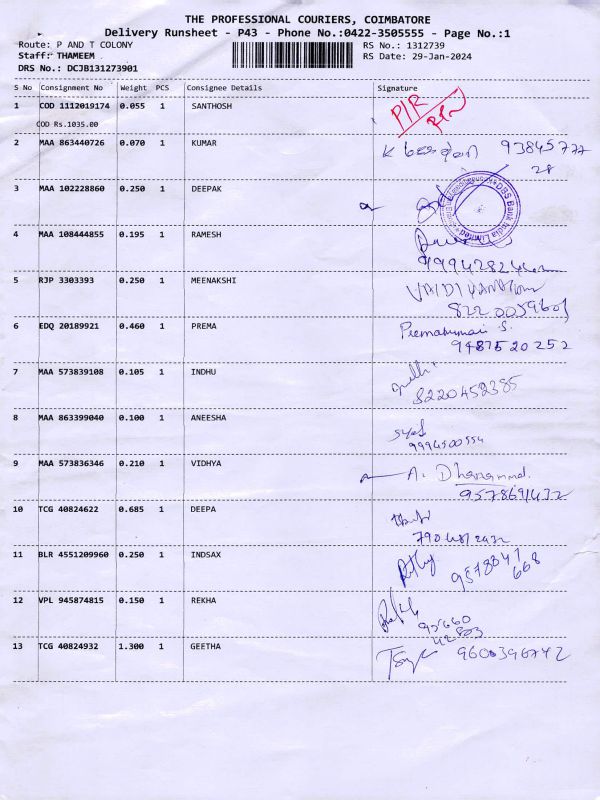 THE PROFESSIONAL COURIERS, COIMBATORE
Delivery Runsheet - P43 - Phone No.:0422-3505555 - Page No.:1
Route: P AND T COLONY
RS No.: 1312739
Staff: THAMEEM .
RS Date: 29-Jan-2024
DRS No.: DCJB131273901
S No Consignment No Weight PCS Consignee Details Signature
1 COD 1112019174 0.055 1 SANTHOSH P/R
COD Rs.1035.00
2 MAA 863440726 0.070 1 KUMAR 93845777
28
3 MAA 102228860 0.250 1 DEEPAK
DBS Bank India Limited
4 MAA 108444855 0.195 1 RAMESH
5 RJP 3303393 0.250 1 MEENAKSHI
6 EDQ 20189921 0.460 1 PREMA Premakumari S.
9487520252
7 MAA 573839108 0.105 1 INDHU
8220452385
8 MAA 863399040 0.100 1 ANEESHA
9994500554
9 MAA 573836346 0.210 1 VIDHYA A. Dhanammal.
9578691432
10 TCG 40824622 0.685 1 DEEPA
11 BLR 4551209960 0.250 1 INDSAX
668
12 VPL 945874815 0.150 1 REKHA
13 TCG 40824932 1.300 1 GEETHA 9600396742